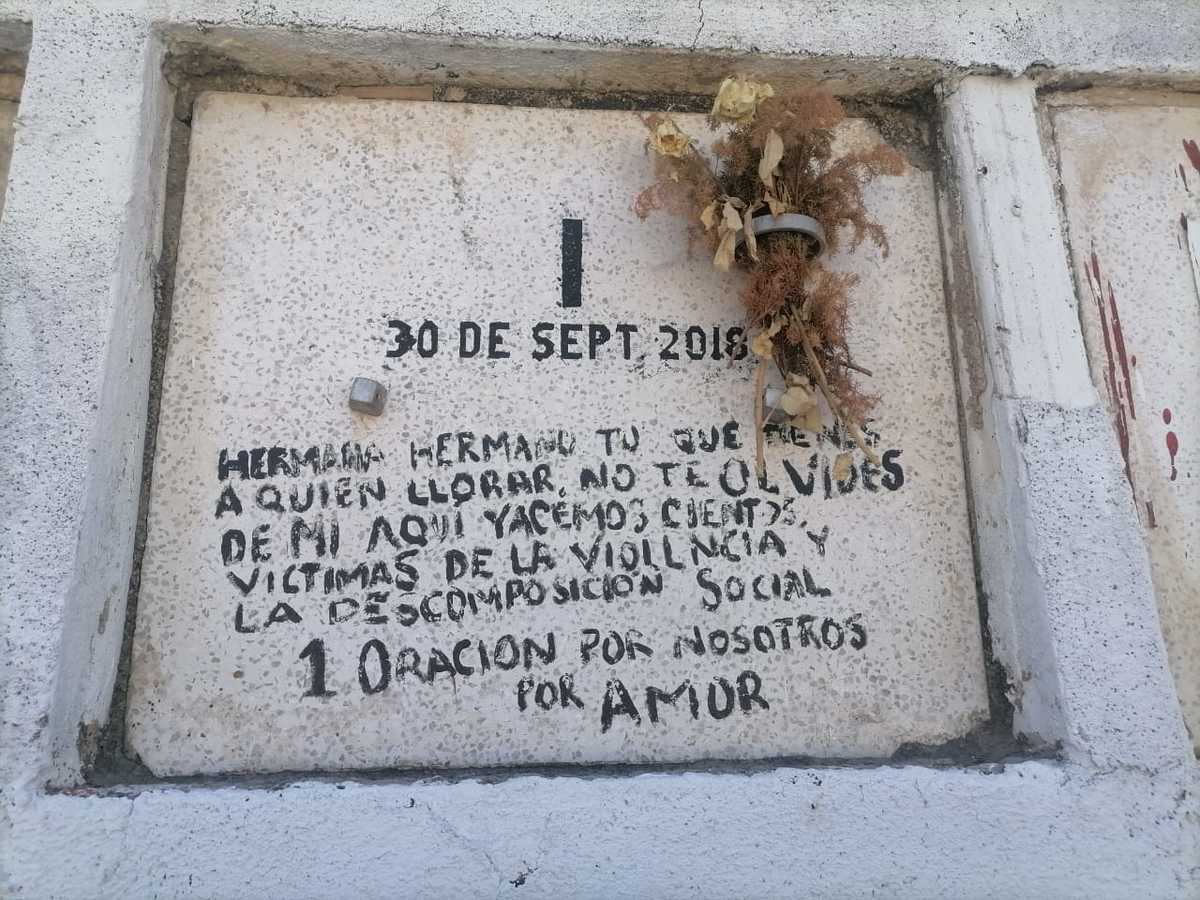 I
30 DE SEPT. 2018
HERMANA HERMANO TU QUE TIENES
A QUIEN LLORAR. NO TE OLVIDES
DE MI AQUI YACEMOS CIENTOS.
VICTIMAS DE LA VIOLENCIA Y
LA DESCOMPOSICION SOCIAL
1 ORACION POR NOSOTROS
POR AMOR